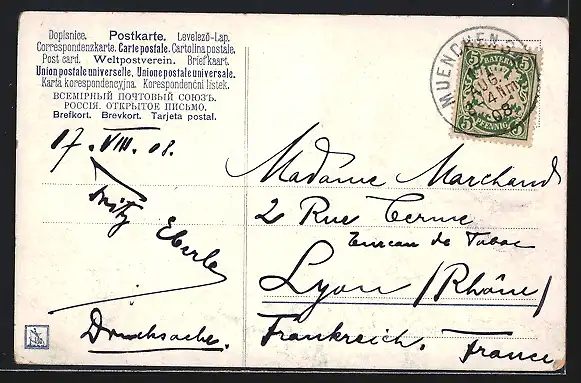 Dopisnice. Postkarte. Levelező-Lap.
Correspondenzkarte. Carte postale. Cartolina postale.
Post card. Weltpostverein. Briefkaart.
Union postale universelle. Unione postale universale.
Karta korespondencyjna. Korespondenční lístek.
ВСЕМІРНЫЙ ПОЧТОВЫЙ СОЮЗЪ.
РОССІЯ. ОТКРЫТОЕ ПИСЬМО.
Brefkort. Brevkort. Tarjeta postal.
17. VIII. 08.
Fritz Eberle
Drucksache.
MUENCHEN
BAYERN
5 5
4 Nm
08
5 5
PFENNIG
Madame Marchand
2 Rue Terme
Bureau de Tabac
Lyon (Rhône)
Frankreich. France